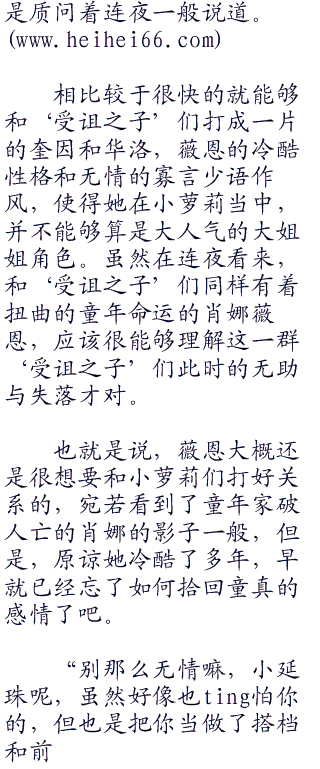 是质问着连夜一般说道。
(www.heihei66.com)
相比较于很快的就能够
和‘受诅之子’们打成一片
的奎因和华洛，薇恩的冷酷
性格和无情的寡言少语作
风，使得她在小萝莉当中，
并不能够算是大人气的大姐
姐角色。虽然在连夜看来，
和‘受诅之子’们同样有着
扭曲的童年命运的肖娜薇
恩，应该很能够理解这一群
‘受诅之子’们此时的无助
与失落才对。
也就是说，薇恩大概还
是很想要和小萝莉们打好关
系的，宛若看到了童年家破
人亡的肖娜的影子一般，但
是，原谅她冷酷了多年，早
就已经忘了如何拾回童真的
感情了吧。
“别那么无情嘛，小延
珠呢，虽然好像也ting怕你
的，但也是把你当做了搭档
和前